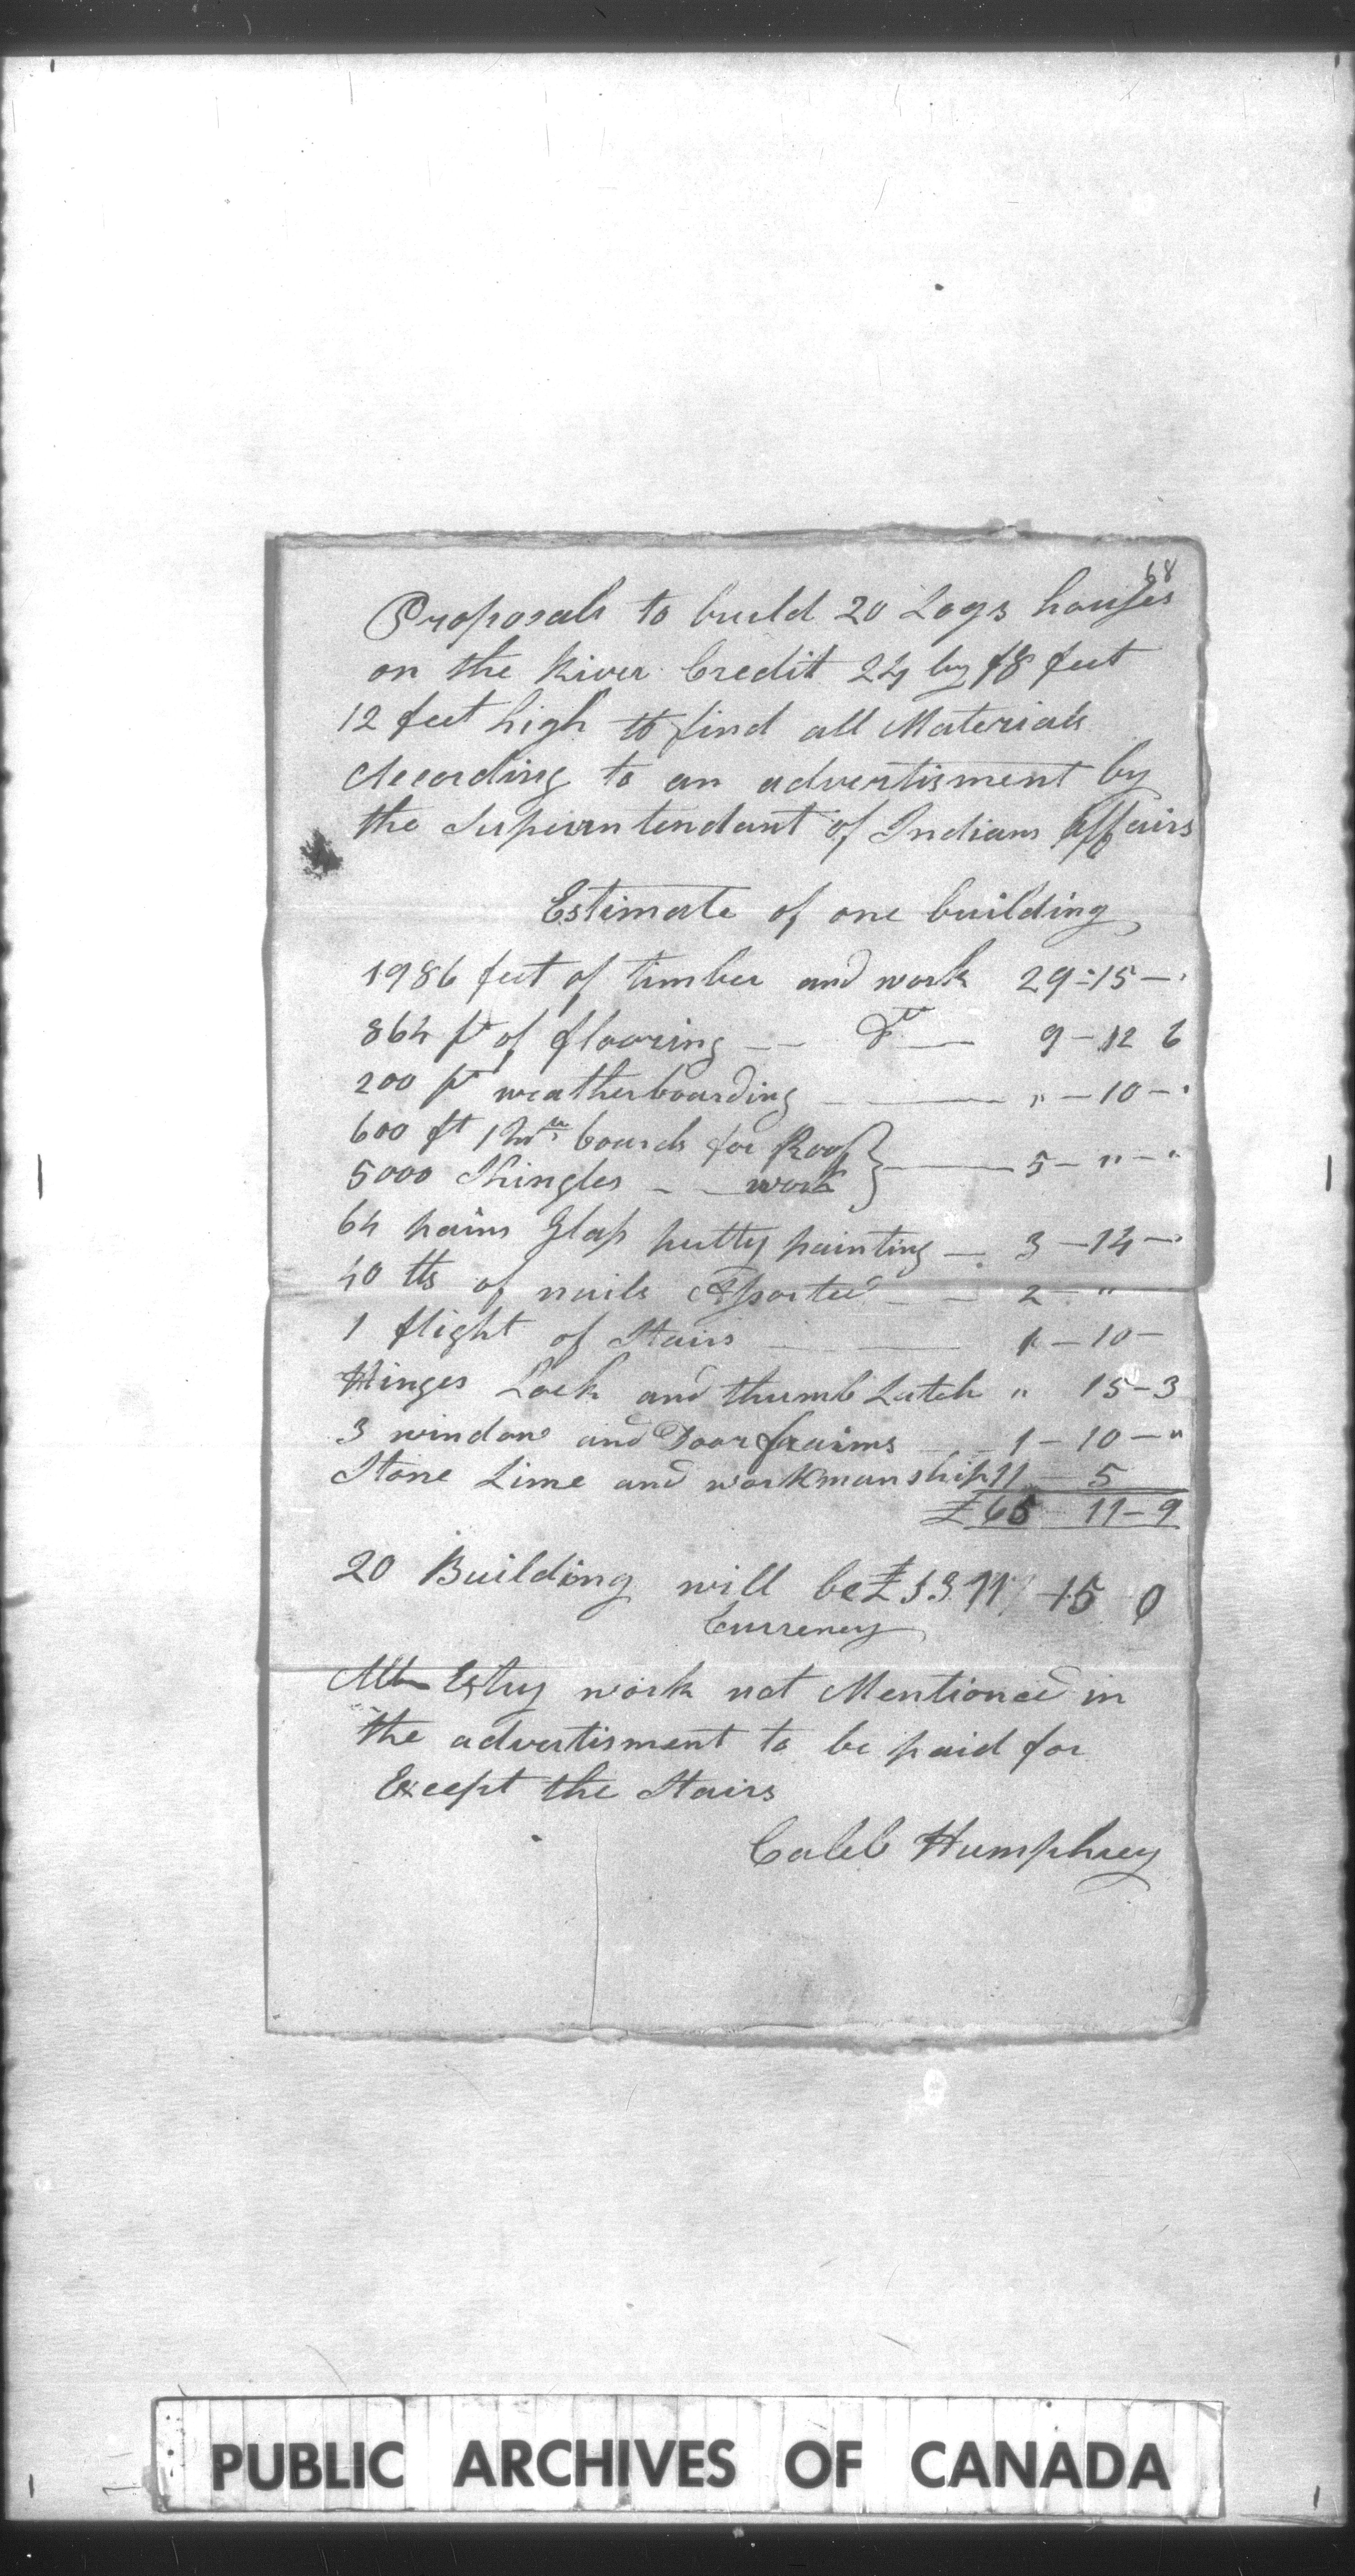 68
Proposals to build 20 Logs houses
on the River Credit 24 by 18 feet
12 feet high to find all Materials
According to an advertisment by
the Superintendant of Indians Affairs
Estimate of one building
1986 feet of timber and work 29-15-"
864 ft of flooring — Do — 9-12 6
200 ft weatherboarding — " -10-"
600 ft boards for Roof
5000 Shingles - - work } — 5-"-"
64 pains Glass putty painting — 3-14-"
40 lbs of nails Assorted - - 2 - "
1 flight of Stairs — 1-10-
Hinges Lock and thumb Latch " 15-3
3 window and Door fraims - - 1-10-"
Stone Lime and workmanship 11 - 5
£65 - 11-9
20 Building will be £ 1311 -15 0
Currency
All Extry work not Mentioned in
the advertisment to be paid for
Except the Stairs
Caleb Humphrey
PUBLIC ARCHIVES OF CANADA